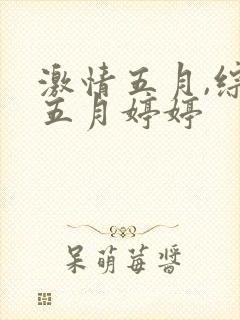 激情五月,综
五月婷婷
呆萌莓酱